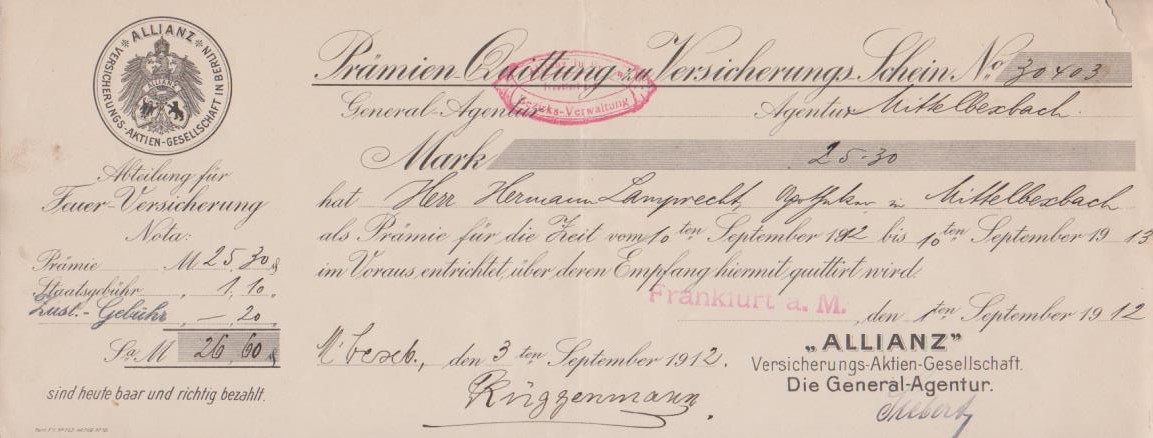 ALLIANZ
VERSICHERUNGS-AKTIEN-GESELLSCHAFT IN BERLIN
ALLIANZ
Abteilung für
Feuer-Versicherung
Nota:
Prämie M. 25,30 ₰
Staatsgebühr „ 1,10 „
Zust.-Gebühr „ —,20 „
Sa. M 26,60 ₰
sind heute baar und richtig bezahlt.
Prämien-Quittung zu Versicherungs-Schein No. 30403
Bezirks-Verwaltung
General-Agentur Agentur Mittelbexbach.
Mark 25.30
hat Herr Hermann Lamprecht, Apotheker in Mittelbexbach
als Prämie für die Zeit vom 10ten September 1912 bis 10ten September 1913
im Voraus entrichtet, über deren Empfang hiermit quittirt wird.
Frankfurt a. M. , den 1ten September 1912
M'bexb., den 3ten September 1912.
Rüggenmann.
„ALLIANZ”
Versicherungs-Aktien-Gesellschaft.
Die General-Agentur.